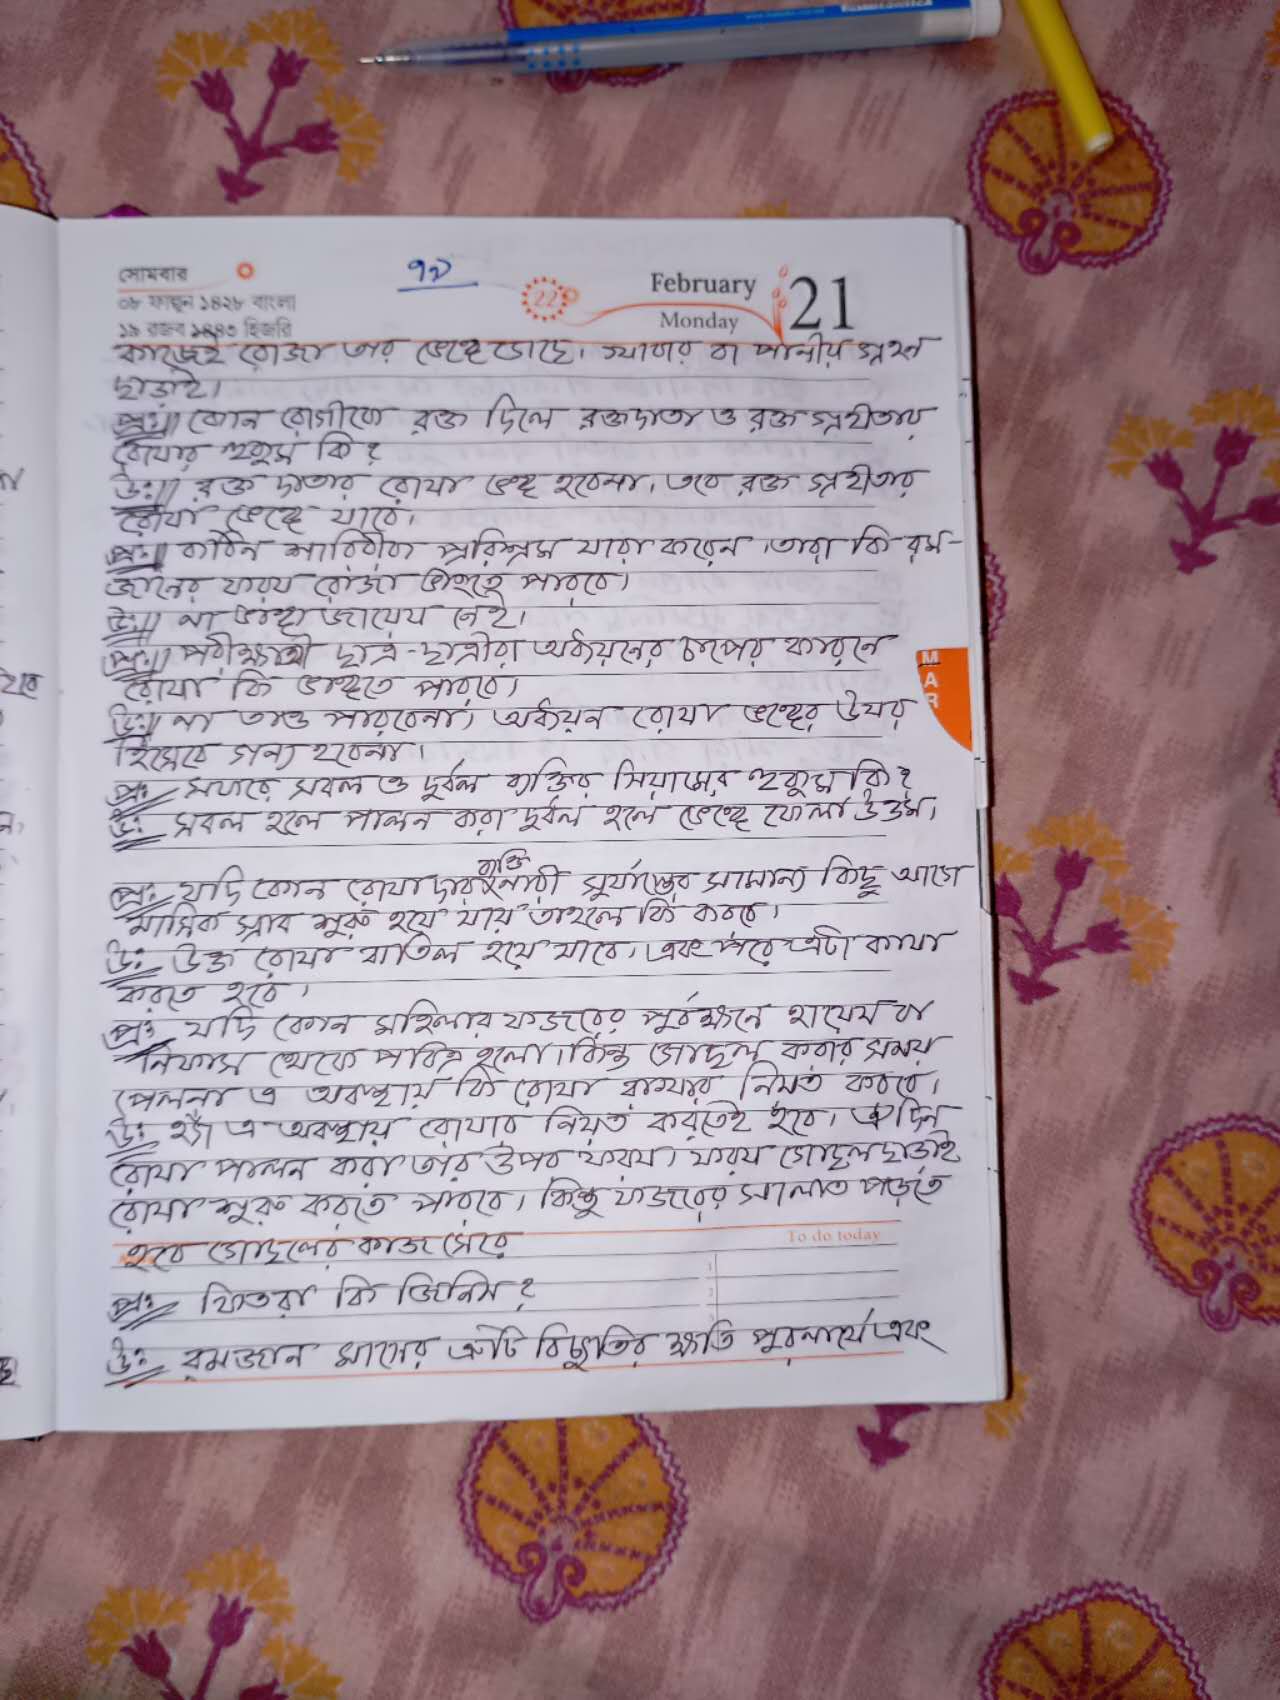 সোমবার
০৮ ফাল্গুন ১৪২৮ বাংলা
১৯ রজব ১৪৪৩ হিজরি
৭৯
22
February
Monday
21
কাজেই রোজা তার ভেঙ্গে গেছে। খাবার বা পানীয় গ্রহন
ছাড়াই।
প্রঃ॥ কোন রোগীকে রক্ত দিলে রক্তদাতা ও রক্ত গ্রহীতার
রোযার হুকুম কি?
উঃ॥ রক্ত দাতার রোযা ভঙ্গ হবেনা। তবে রক্ত গ্রহীতার
রোযা ভেঙ্গে যাবে।
প্রঃ॥ কঠিন শারিরীক পরিশ্রম যারা করেন। তারা কি রম-
জানের ফরয রোজা ভাঙ্গতে পারবে।
উঃ॥ না ভাঙ্গা জায়েয নেই।
প্রঃ॥ পরীক্ষার্থী ছাত্র-ছাত্রীরা অধ্যয়নের চাপের কারনে
রোযা কি ভাঙ্গতে পারবে।
উঃ॥ না তাও পারবেনা, অধ্যয়ন রোযা ভঙ্গের উযর
হিসেবে গন্য হবেনা।
প্রঃ সফরে সবল ও দুর্বল ব্যক্তির সিয়ামের হুকুম কি?
উঃ সবল হলে পালন করা দুর্বল হলে ভেঙ্গে ফেলা উত্তম।
প্রঃ যদি কোন রোযাদার নারী সুর্যাস্তের সামান্য কিছু আগে
মাসিক স্রাব শুরু হয়ে যায় তাহলে কি করবে।
উঃ উক্ত রোযা বাতিল হয়ে যাবে। এবং পরে এটা কাযা
করতে হবে।
প্রঃ যদি কোন মহিলার ফজরের পূর্বক্ষনে হায়েয বা
নিফাস থেকে পবিত্র হলো। কিন্তু গোছল করার সময়
পেলনা এ অবস্থায় কি রোযা রাখার নিয়ত করবে।
উঃ হ্যাঁ এ অবস্থায় রোযার নিয়ত করতেই হবে। ঐ দিন
রোযা পালন করা তার উপর ফরয। ফরয গোছল ছাড়াই
রোযা শুরু করতে পারবে। কিন্তু ফজরের সালাত পড়তে
হবে গোছলের কাজ সেরে
To do today
1
2
প্রঃ ফিতরা কি জিনিস?
উঃ রমজান মাসের ত্রুটি বিচ্যুতির ক্ষতি পুরনার্থে এবং
MAR